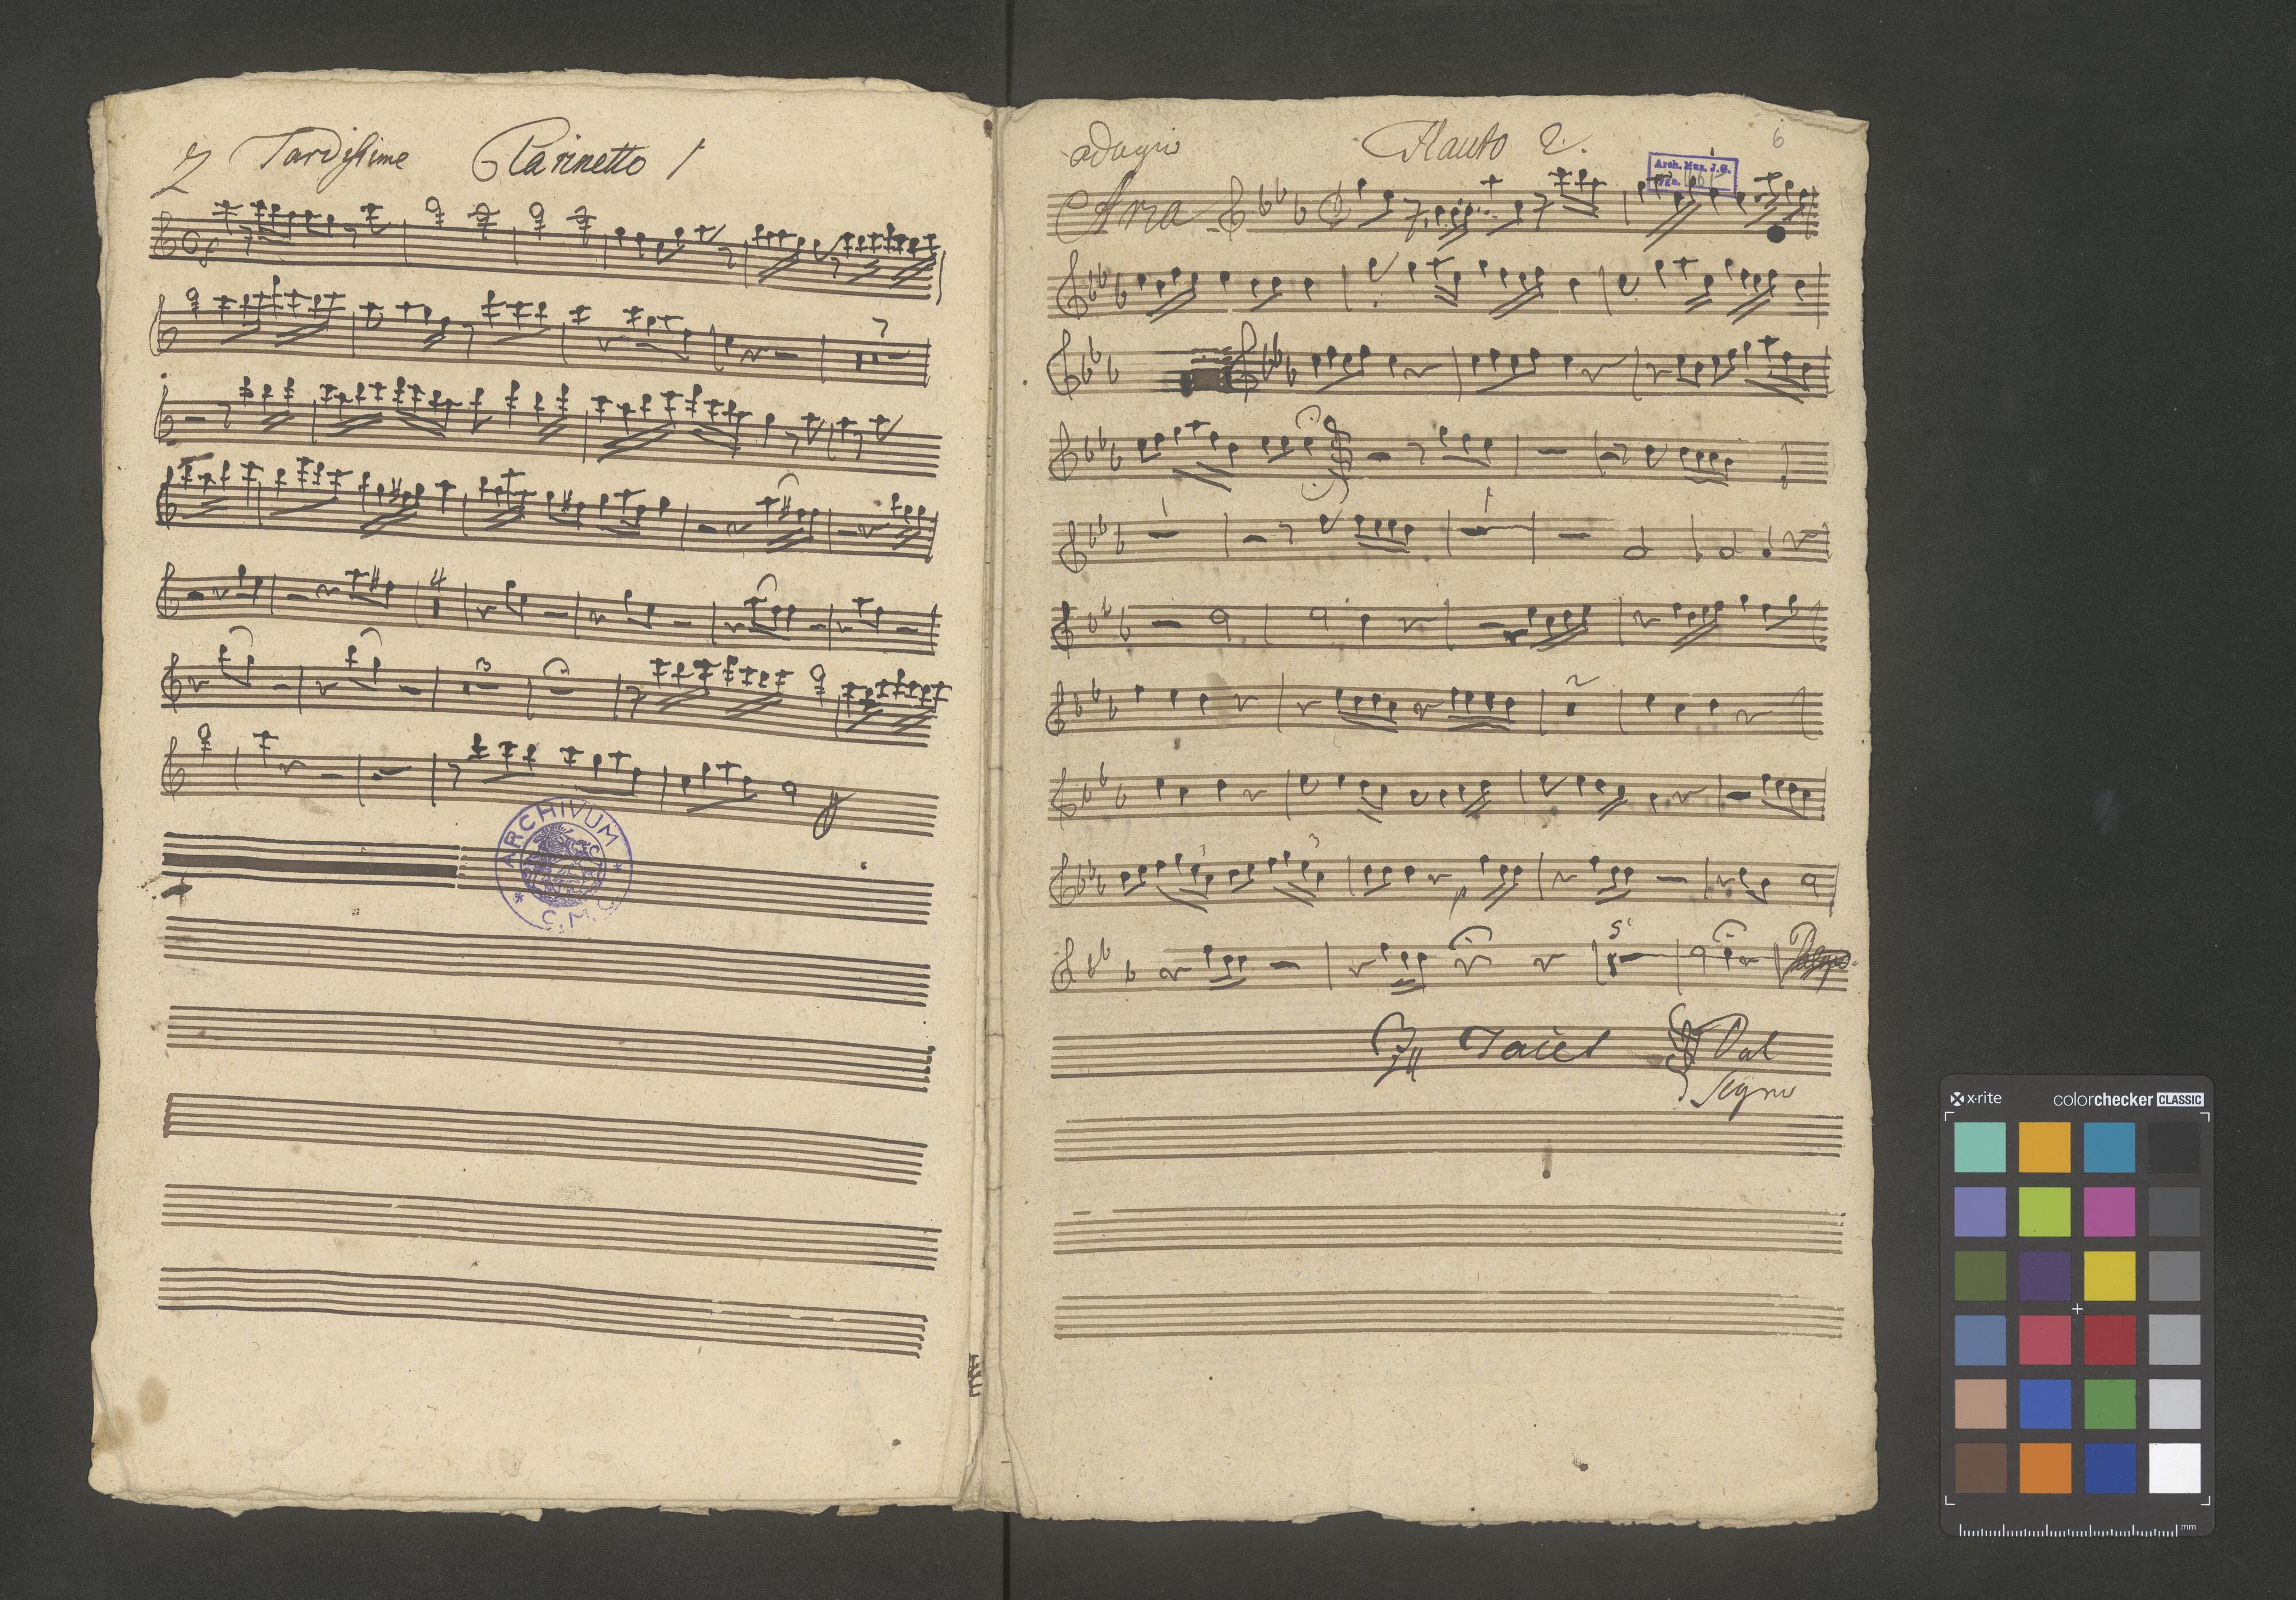 2 Tardissime Clarinetto 1
7
4
3
ARCHIVUM
C. M.
adagio Flauto 2. 6
Arch. Mus. J. G.
Aria
1 1
3 3
Tacet Dal
Segno
x-rite colorchecker CLASSIC
mm